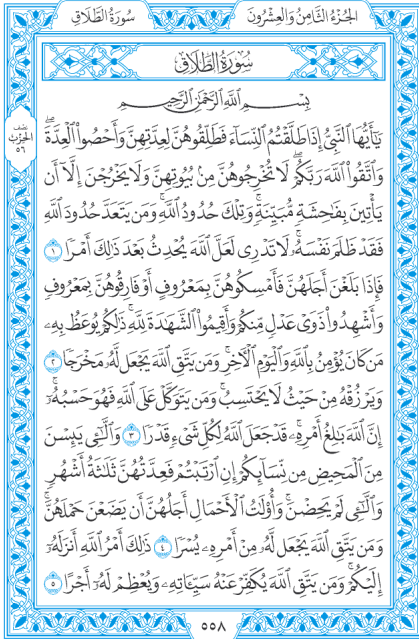 الجُزْءُ الثَّامِنُ وَالعِشْرُونَ
سُورَةُ الطَّلَاقِ
سُورَةُ الطَّلَاقِ
نصف
الحزب
٥٦
بِسْمِ اللَّهِ الرَّحْمَٰنِ الرَّحِيمِ
يَٰٓأَيُّهَا ٱلنَّبِىُّ إِذَا طَلَّقْتُمُ ٱلنِّسَآءَ فَطَلِّقُوهُنَّ لِعِدَّتِهِنَّ وَأَحْصُوا۟ ٱلْعِدَّةَۖ
وَٱتَّقُوا۟ ٱللَّهَ رَبَّكُمْۖ لَا تُخْرِجُوهُنَّ مِنۢ بُيُوتِهِنَّ وَلَا يَخْرُجْنَ إِلَّآ أَن
يَأْتِينَ بِفَٰحِشَةٍ مُّبَيِّنَةٍۚ وَتِلْكَ حُدُودُ ٱللَّهِۚ وَمَن يَتَعَدَّ حُدُودَ ٱللَّهِ
فَقَدْ ظَلَمَ نَفْسَهُۥۚ لَا تَدْرِى لَعَلَّ ٱللَّهَ يُحْدِثُ بَعْدَ ذَٰلِكَ أَمْرًا ١
فَإِذَا بَلَغْنَ أَجَلَهُنَّ فَأَمْسِكُوهُنَّ بِمَعْرُوفٍ أَوْ فَارِقُوهُنَّ بِمَعْرُوفٍ
وَأَشْهِدُوا۟ ذَوَىْ عَدْلٍ مِّنكُمْ وَأَقِيمُوا۟ ٱلشَّهَٰدَةَ لِلَّهِۚ ذَٰلِكُمْ يُوعَظُ بِهِۦ
مَن كَانَ يُؤْمِنُ بِٱللَّهِ وَٱلْيَوْمِ ٱلْءَاخِرِۚ وَمَن يَتَّقِ ٱللَّهَ يَجْعَل لَّهُۥ مَخْرَجًا ٢
وَيَرْزُقْهُ مِنْ حَيْثُ لَا يَحْتَسِبُۚ وَمَن يَتَوَكَّلْ عَلَى ٱللَّهِ فَهُوَ حَسْبُهُۥٓۚ
إِنَّ ٱللَّهَ بَٰلِغُ أَمْرِهِۦۚ قَدْ جَعَلَ ٱللَّهُ لِكُلِّ شَىْءٍ قَدْرًا ٣ وَٱلَّٰٓـِٔى يَئِسْنَ
مِنَ ٱلْمَحِيضِ مِن نِّسَآئِكُمْ إِنِ ٱرْتَبْتُمْ فَعِدَّتُهُنَّ ثَلَٰثَةُ أَشْهُرٍ
وَٱلَّٰٓـِٔى لَمْ يَحِضْنَۚ وَأُو۟لَٰتُ ٱلْأَحْمَالِ أَجَلُهُنَّ أَن يَضَعْنَ حَمْلَهُنَّۚ
وَمَن يَتَّقِ ٱللَّهَ يَجْعَل لَّهُۥ مِنْ أَمْرِهِۦ يُسْرًا ٤ ذَٰلِكَ أَمْرُ ٱللَّهِ أَنزَلَهُۥٓ
إِلَيْكُمْۚ وَمَن يَتَّقِ ٱللَّهَ يُكَفِّرْ عَنْهُ سَيِّـَٔاتِهِۦ وَيُعْظِمْ لَهُۥٓ أَجْرًا ٥
٥٥٨